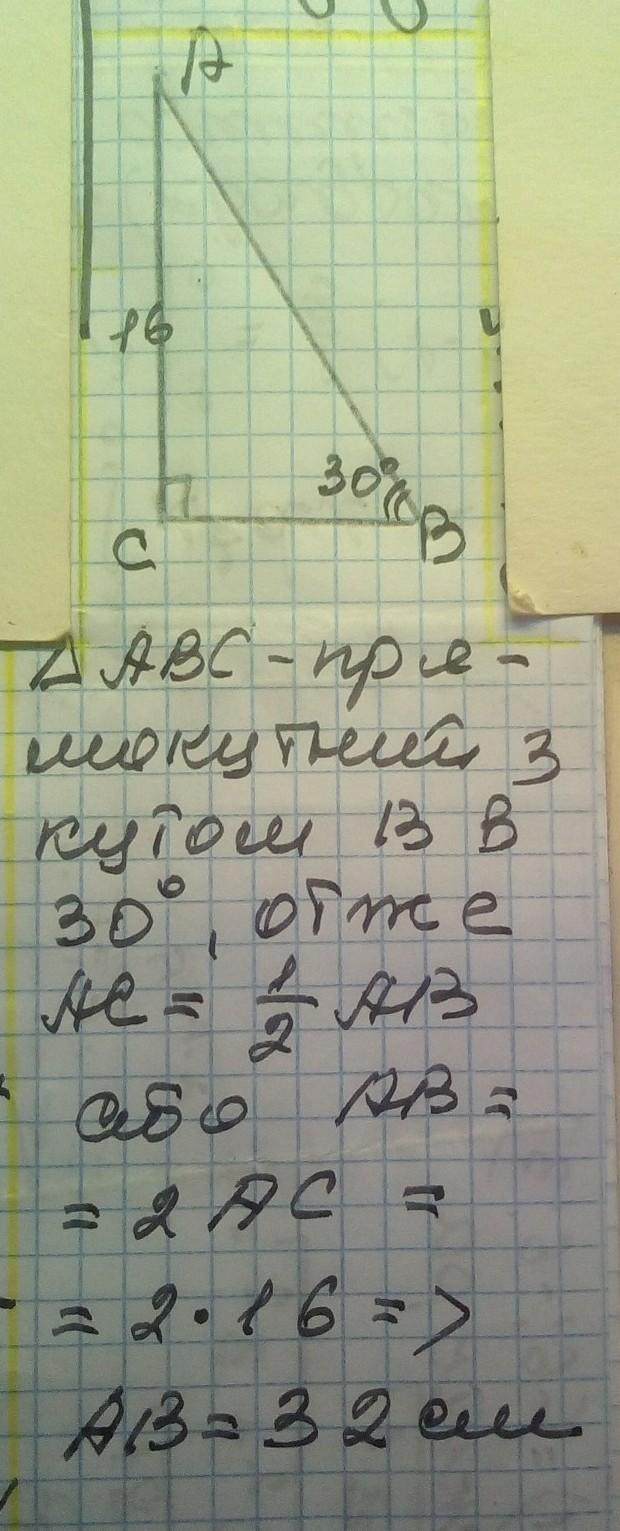 A
16
30°
C
B
△ABC - пря-
мокутний з
кутом B в
30°, отже
AC = 1/2 AB
або AB =
= 2 AC =
= 2 · 16 =>
AB = 32 см